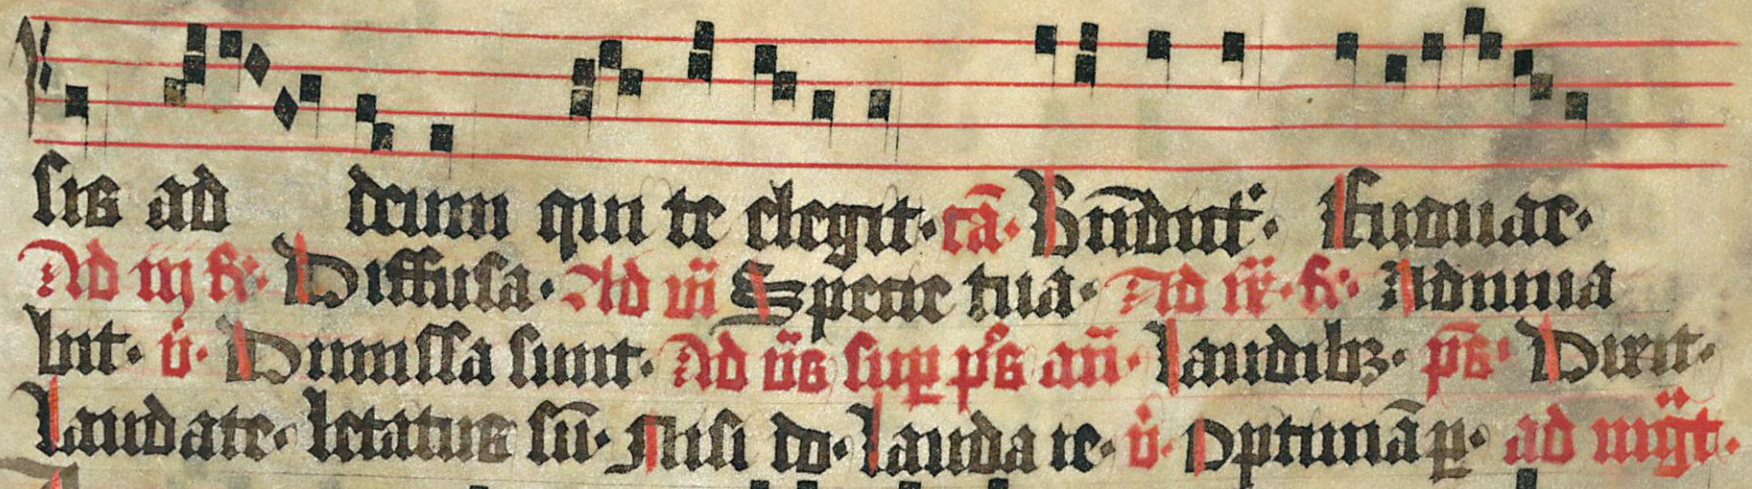 sis ad deum qui te elegit. cā. Bn̄dnt᷑. Euouae.
Ad iij R. Diffusa. Ad vi Specie tua. Ad ix. R. Adiuua
bit. v. Dimissa sunt. Ad vs̄ sup ps̄ an̄. Laudibꝫ. ps̄. Dixit.
Laudate. letatus sū. Nisi do. Lauda ie. v. Optimā p. ad mg̅t.